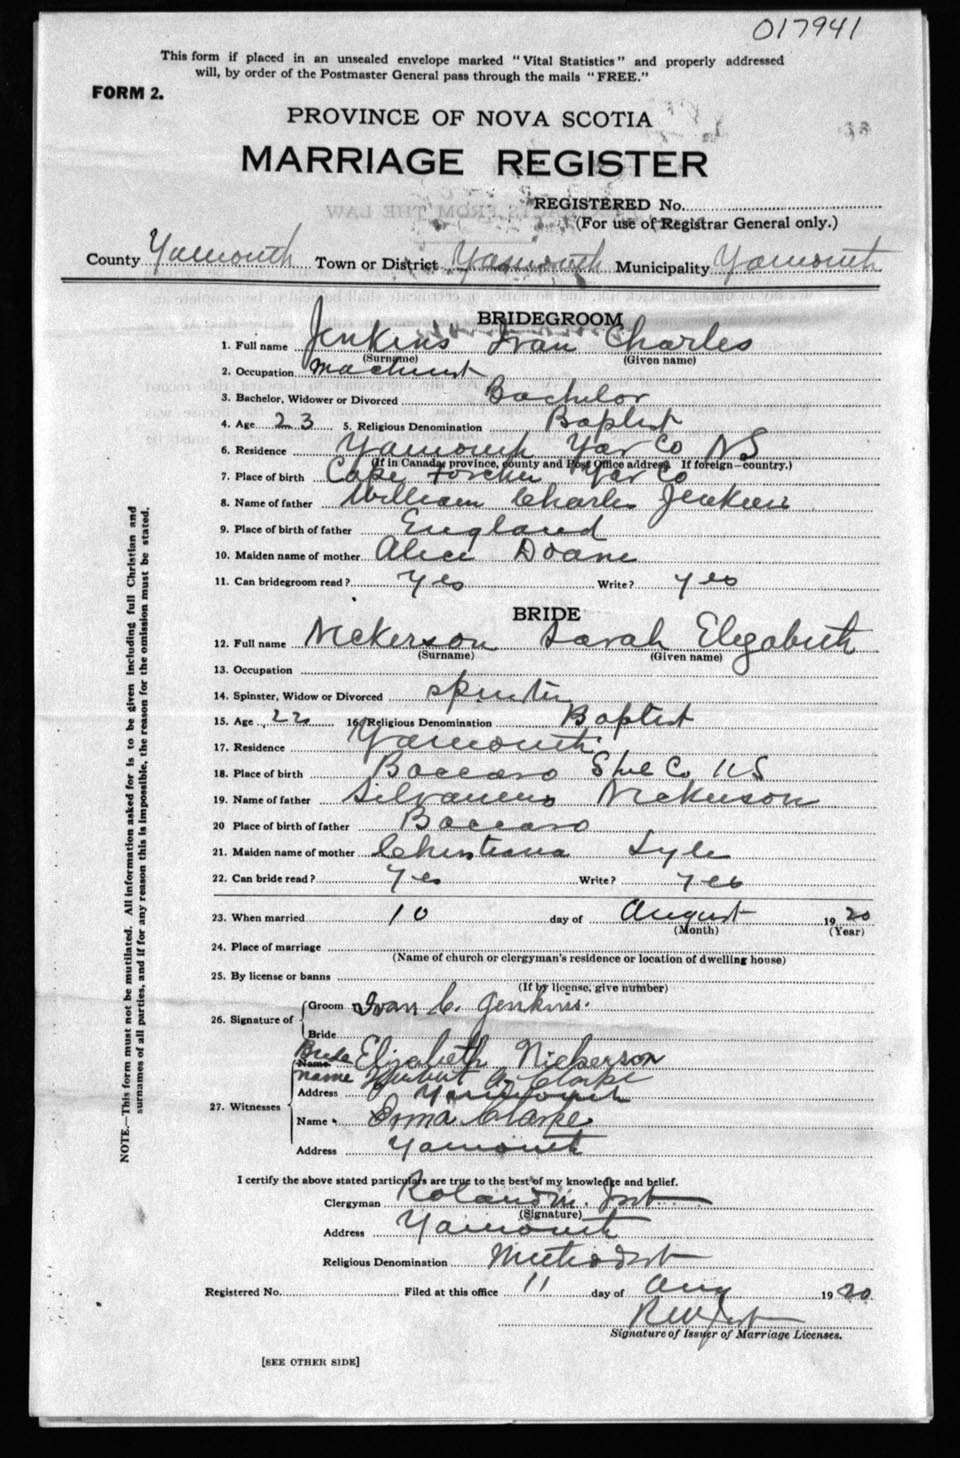 017941
This form if placed in an unsealed envelope marked "Vital Statistics" and properly addressed
will, by order of the Postmaster General pass through the mails "FREE."
FORM 2.
PROVINCE OF NOVA SCOTIA
MARRIAGE REGISTER
REGISTERED No.
(For use of Registrar General only.)
County Yarmouth Town or District Yarmouth Municipality Yarmouth
BRIDEGROOM
1. Full name Jenkins Ivan Charles
(Surname) (Given name)
2. Occupation machinist
3. Bachelor, Widower or Divorced Bachelor
4. Age 23 5. Religious Denomination Baptist
6. Residence Yarmouth Yar Co NS
(If in Canada, province, county and Post Office address. If foreign—country.)
7. Place of birth Cape Forchu Yar Co
8. Name of father William Charles Jenkins
9. Place of birth of father England
10. Maiden name of mother Alice Doane
11. Can bridegroom read? Yes Write? yes
BRIDE
12. Full name Nickerson Sarah Elizabeth
(Surname) (Given name)
13. Occupation
14. Spinster, Widow or Divorced spinster
15. Age 22 16. Religious Denomination Baptist
17. Residence Yarmouth
18. Place of birth Baccaro Shel Co NS
19. Name of father Silvanus Nickerson
20 Place of birth of father Baccaro
21. Maiden name of mother Christiana Lyle
22. Can bride read? Yes Write? yes
23. When married 10 day of August 1920
(Month) (Year)
24. Place of marriage
(Name of church or clergyman's residence or location of dwelling house)
25. By license or banns
(If by license, give number)
26. Signature of Groom Ivan C. Jenkins.
Bride
Bride Elizabeth Nickerson
Name
name A Clarke
27. Witnesses Address Yarmouth
Name Erma Clarke
Address Yarmouth
I certify the above stated particulars are true to the best of my knowledge and belief.
Clergyman Roland M.
(Signature)
Address Yarmouth
Religious Denomination Methodist
Registered No. Filed at this office 11 day of Aug 1920
Signature of Issuer of Marriage Licenses.
[SEE OTHER SIDE]
NOTE.—This form must not be mutilated. All information asked for is to be given including full Christian and
surnames of all parties, and if for any reason this is impossible, the reason for the omission must be stated.